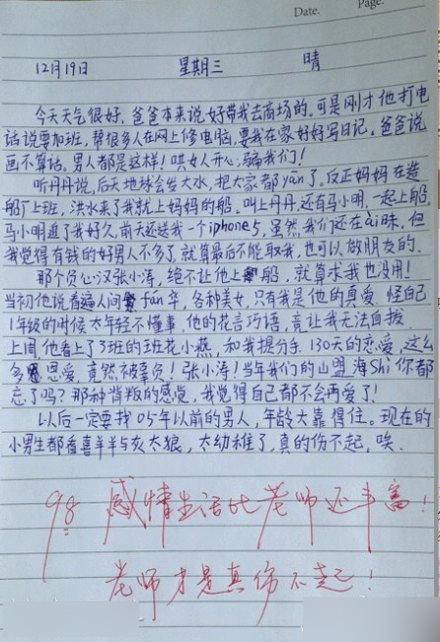 Date.
Page.
12月19日 星期三 晴
今天天气很好,爸爸本来说好带我去商场的。可是刚才他打电
话说要加班,帮很多人在网上修电脑,要我在家好好写日记。爸爸说
画不算话。男人都是这样!哄女人开心,骗我们!
听丹丹说,后天地球会发大水,把大家都yān了。反正妈妈在造
船厂上班,洪水来了我就上妈妈的船。叫上丹丹,还有马小明,一起上船,
马小明追了我好久,前天还送我一个iphone5,虽然,我们还在ài昧。但
我觉得有钱的好男人不多了,就算最后不能取我,也可以做朋友的。
那个负心汉张小涛,绝不让他上船,就算求我也没用!
当初他说看遍人间fán华,各种美女,只有我是他的真爱,怪自己
1年级的时候太年轻不懂事,他的花言巧语,竟让我无法自拔。
上周他看上了3班的班花小燕,和我提分手,130天的恋爱,这么
多恩爱,竟然被辜负!张小涛!当年我们的山盟海Shì你都
忘了吗?那种背叛的感觉,我觉得自己都不会再爱了!
以后一定要找05年以前的男人,年龄大靠得住。现在的
小男生都看喜羊羊与灰太狼,太幼稚了,真的伤不起,唉。
98 感情生活比老师还丰富!
老师才是真伤不起!